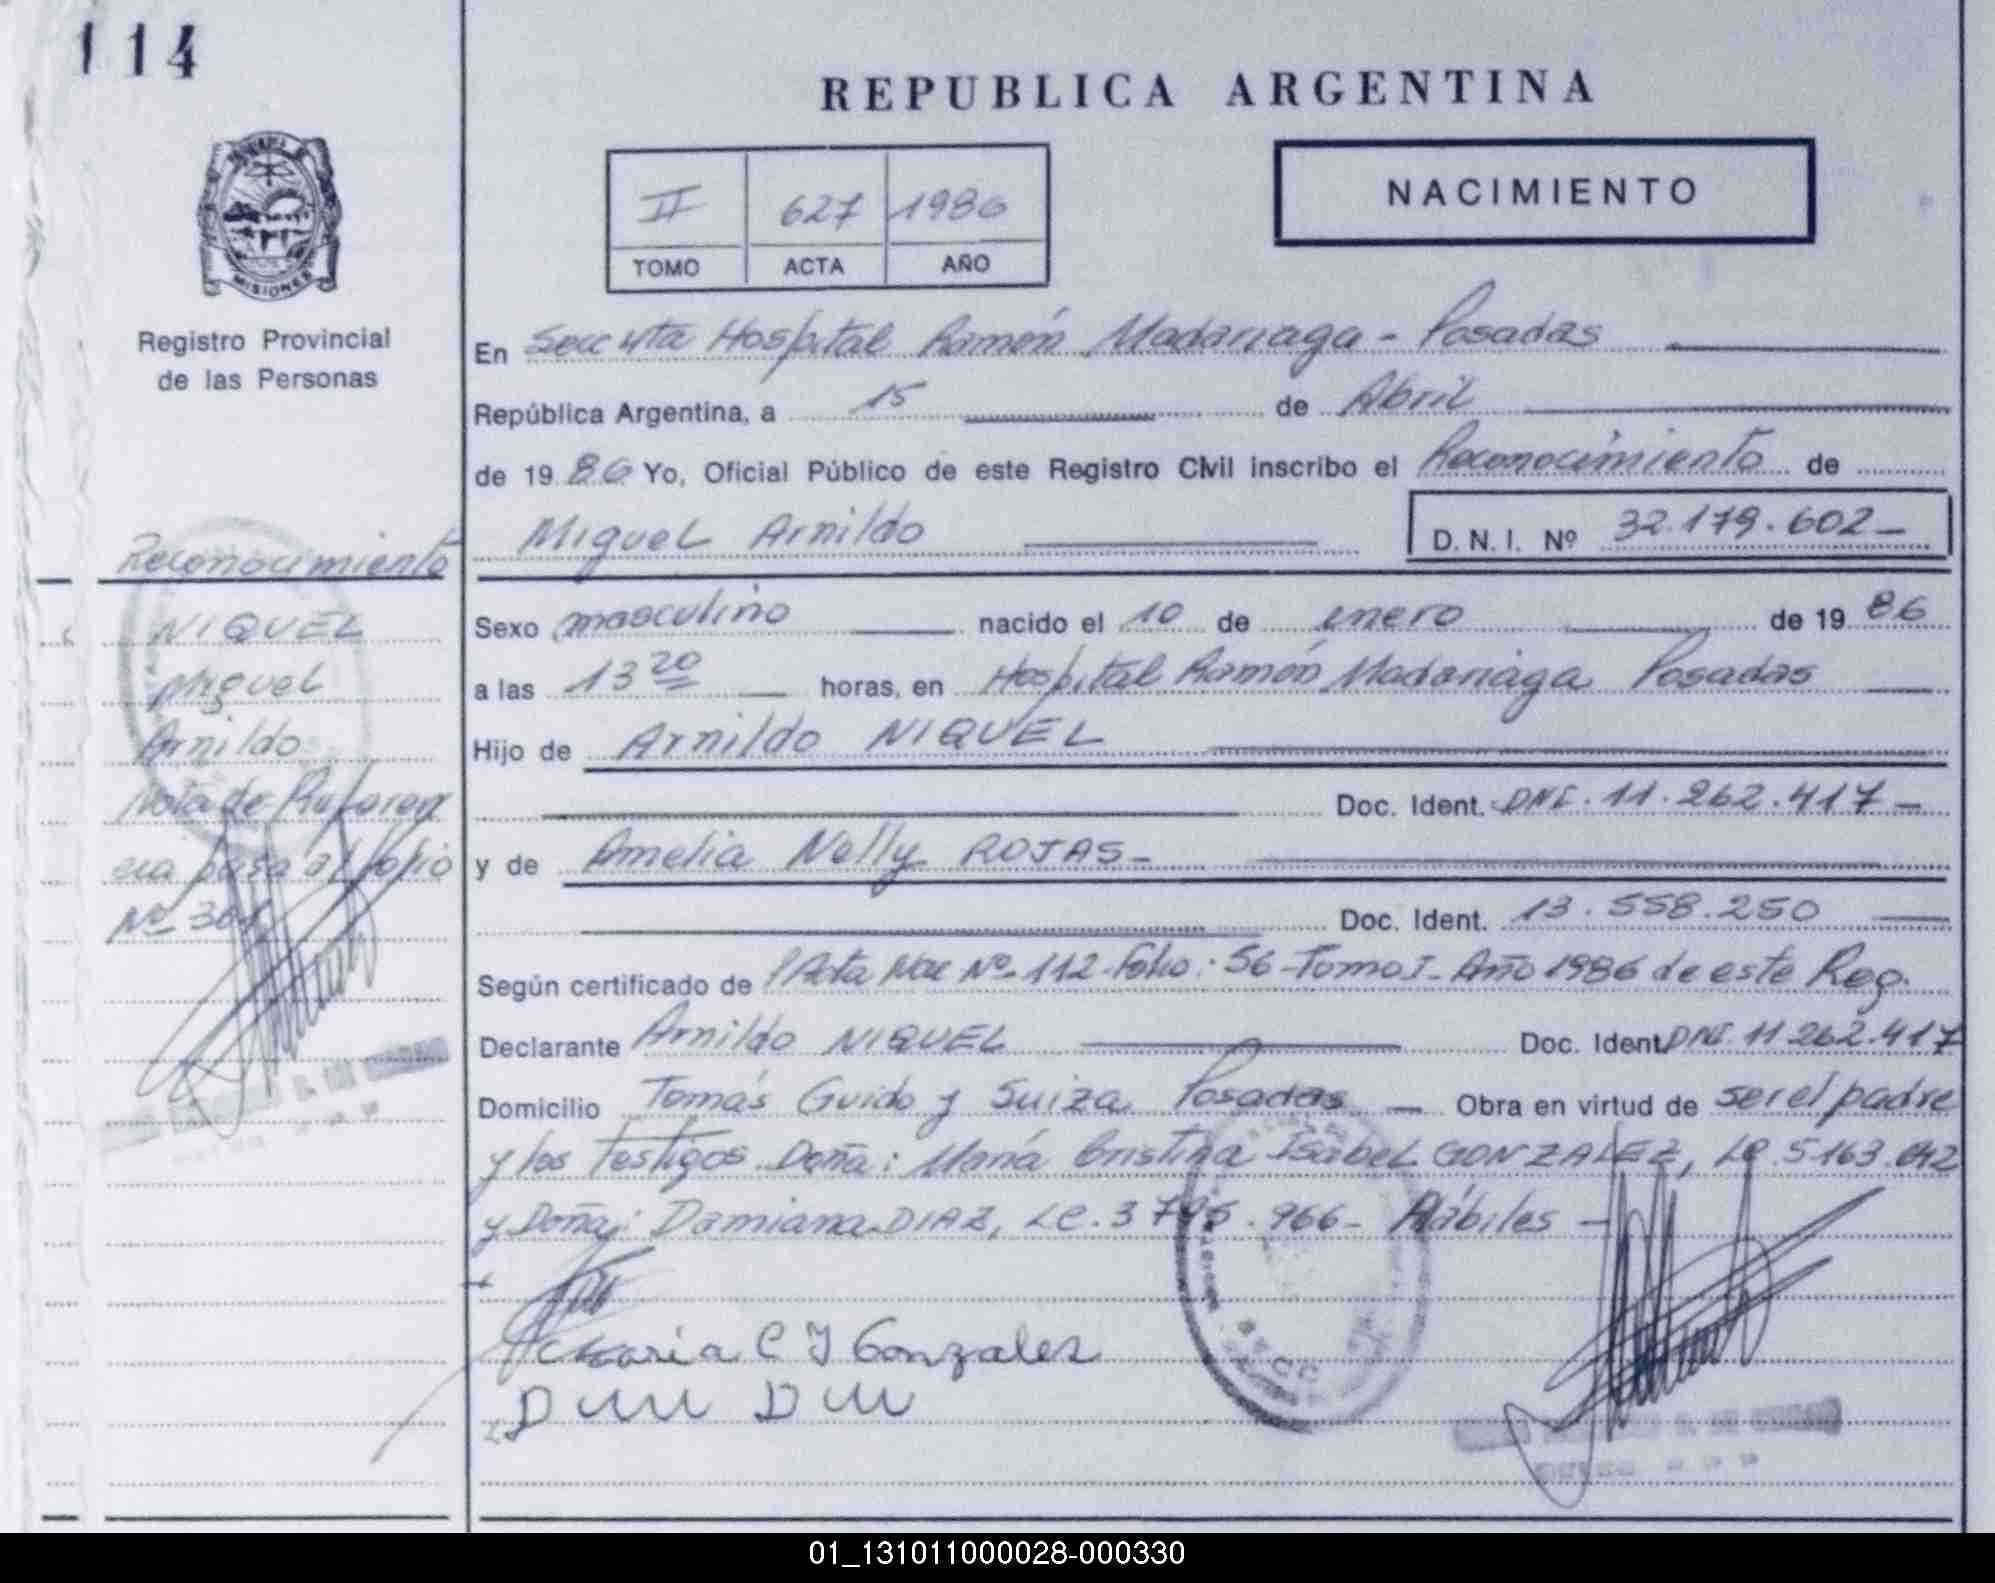 114
REPUBLICA ARGENTINA
MISIONES
Registro Provincial
de las Personas
II 627 1986
TOMO ACTA AÑO
NACIMIENTO
En Secc 4ta Hospital Ramón Madariaga - Posadas
República Argentina, a 15 de Abril
de 1986 Yo, Oficial Público de este Registro Civil inscribo el Reconocimiento de
Miguel Arnildo D. N. I. Nº 32.179.602-
Reconocimiento
NIQUEL
Miguel
Arnildo
Nota de Referen
cia pasa al folio
Nº
Sexo masculino nacido el 10 de enero de 1986
a las 13 20 horas, en Hospital Ramón Madariaga Posadas
Hijo de Arnildo NIQUEL
Doc. Ident. DNI. 11.262.417-
y de Amelia Nelly ROJAS-
Doc. Ident. 13.558.250
Según certificado de Acta Nac Nº 112-Folio: 56-Tomo I-Año 1986 de este Reg.
Declarante Arnildo NIQUEL Doc. Ident. DNI. 11 262.417
Domicilio Tomás Guido y Suiza Posadas - Obra en virtud de ser el padre
y los Testigos Doña: María Cristina Isabel GONZALEZ, LC. 5163.
y Doña: Damiana DIAZ, LC. 3 .966- Hábiles -
Maria C I Gonzalez
01_131011000028-000330